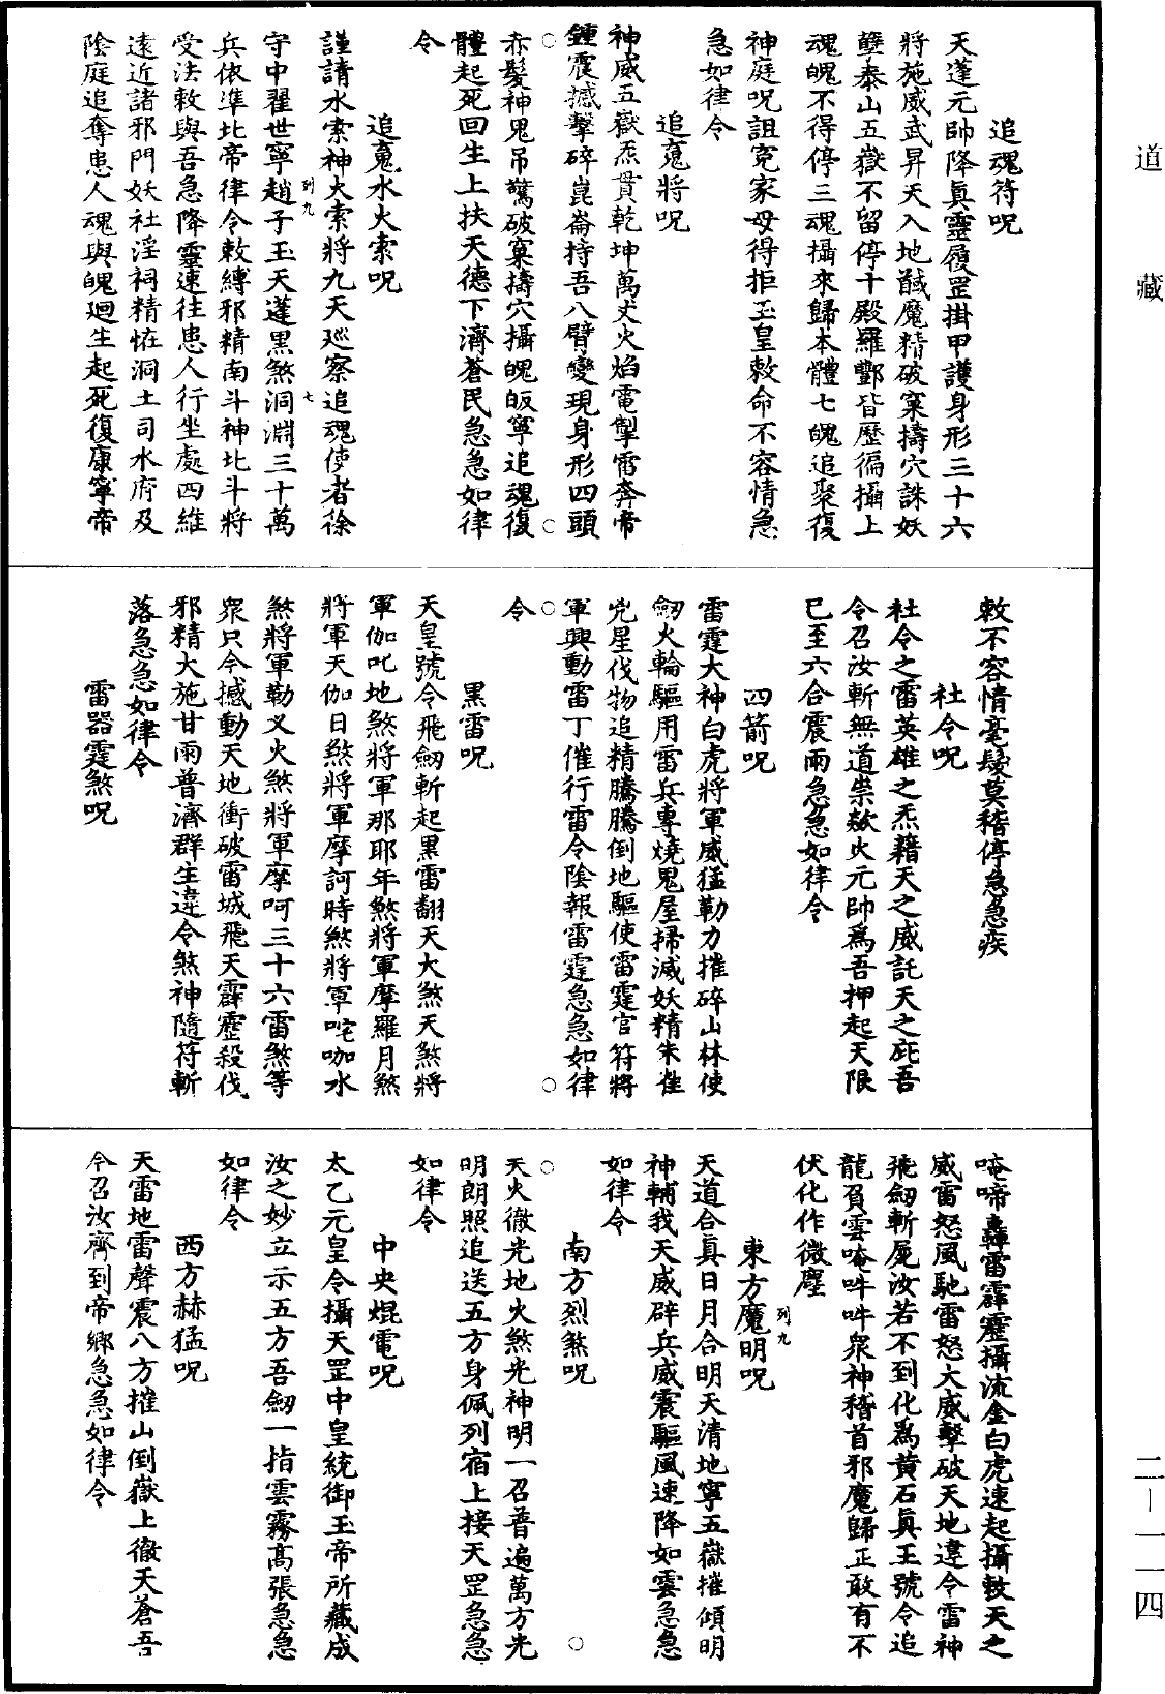 道藏
追魂符呪
天蓬元帥降眞靈履罡掛甲護身形三十六
將施威武昇天入地馘魔精破窠擣穴誅妖
孽泰山五嶽不留停十殿羅酆皆歷徧攝上
魂魄不得停三魂攝來歸本體七魄追聚復
神庭呪詛寃家毋得拒玉皇敕命不容情急
急如律令
追䰟將呪
神威五嶽炁貫乾坤萬丈火焰電掣雷奔帝
鍾震撼擊碎崑崙持吾八臂變現身形四頭
赤髮神鬼吊驚破窠擣穴攝魄皈寧追魂復
體起死回生上扶天德下濟蒼民急急如律
令
追䰟水火索呪
謹請水索神火索將九天巡察追魂使者徐
守中翟世寧趙子玉天蓬黑煞洞淵三十萬
兵依準北帝律令敕縛邪精南斗神北斗將
受法敕與吾急降靈速往患人行坐處四維
遠近諸邪門妖社淫祠精怪洞土司水府及
陰庭追奪患人魂與魄迴生起死復康寧帝
列九
七
敕不容情毫髮莫稽停急急疾
社令呪
社令之雷英雄之炁藉天之威託天之庇吾
令召汝斬無道祟歘火元帥爲吾押起天限
已至六合震雨急急如律令
四箭呪
雷霆大神白虎將軍威猛勒力摧碎山林使
劒火輪驅用雷兵專燒鬼屋掃滅妖精朱雀
兇星伐物追精騰騰倒地驅使雷霆官符將
軍興動雷丁催行雷令陰報雷霆急急如律
令
黑雷呪
天皇號令飛劒斬起黑雷翻天火煞天煞將
軍伽吒地煞將軍那耶年煞將軍摩羅月煞
將軍天伽日煞將軍摩訶時煞將軍咤咖水
煞將軍勒义火煞將軍摩呵三十六雷煞等
衆只今撼動天地衝破雷城飛天霹靂殺伐
邪精大施甘雨普濟群生違令煞神隨符斬
落急急如律令
雷器霆煞呪
唵啼轟雷霹靂攝流金白虎速起攝敕天之
威雷怒風馳雷怒大威擊破天地違令雷神
飛劒斬屍汝若不到化爲黄石眞王號令追
龍負雲唵吽吽衆神稽首邪魔歸正敢有不
伏化作微塵
列九
東方魔明呪
天道合眞日月合明天清地寧五嶽摧傾明
神輔我天威辟兵威震驅風速降如雲急急
如律令
南方烈煞呪
天火徹光地火煞光神明一召普遍萬方光
明朗照追送五方身佩列宿上接天罡急急
如律令
中央焜電呪
太乙元皇令攝天罡中皇統御玉帝所藏成
汝之妙立示五方吾劒一指雲霧髙張急急
如律令
西方赫猛呪
天雷地雷聲震八方摧山倒嶽上徹天蒼吾
今召汝齊到帝鄉急急如律令
二—一一四